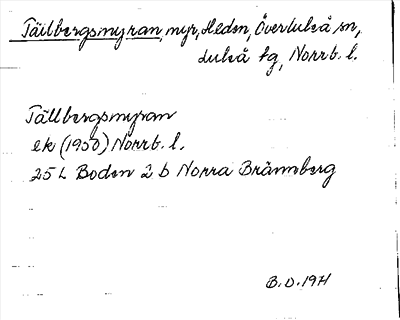 Tällbergsmyran, myr, Heden, Överluleå sn,
Luleå tg, Norrb. l.
Tällbergsmyran
ek (1950) Norrb. l.
25 L Boden 2 b Norra Brännberg
B.O. 1971